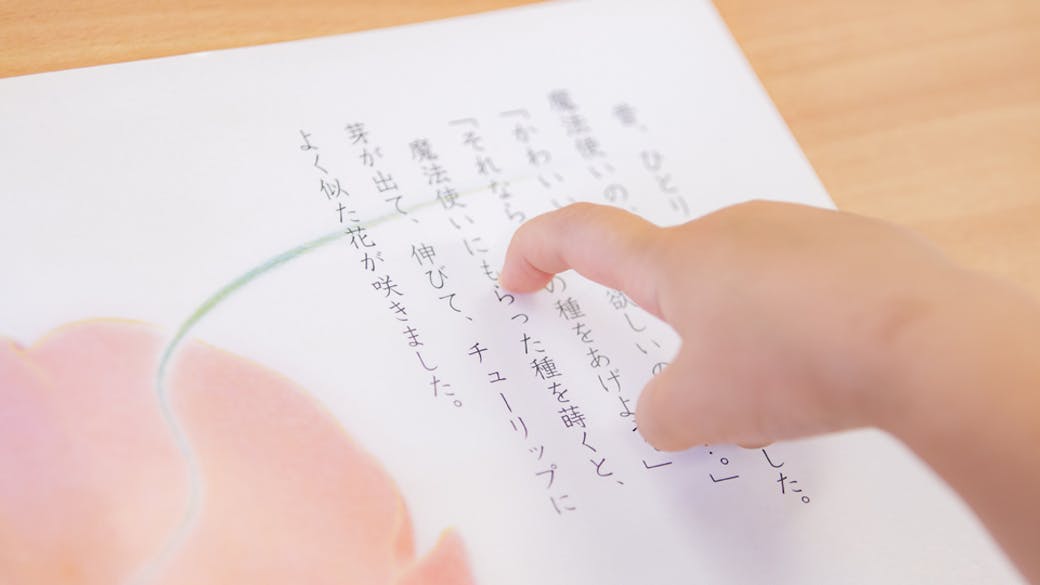 昔、ひとり
魔法使いの、した。
「かわいい欲しいの…。」
「それならの種をあげよ」
魔法使いにもらった種を蒔くと、
芽が出て、伸びて、チューリップに
よく似た花が咲きました。